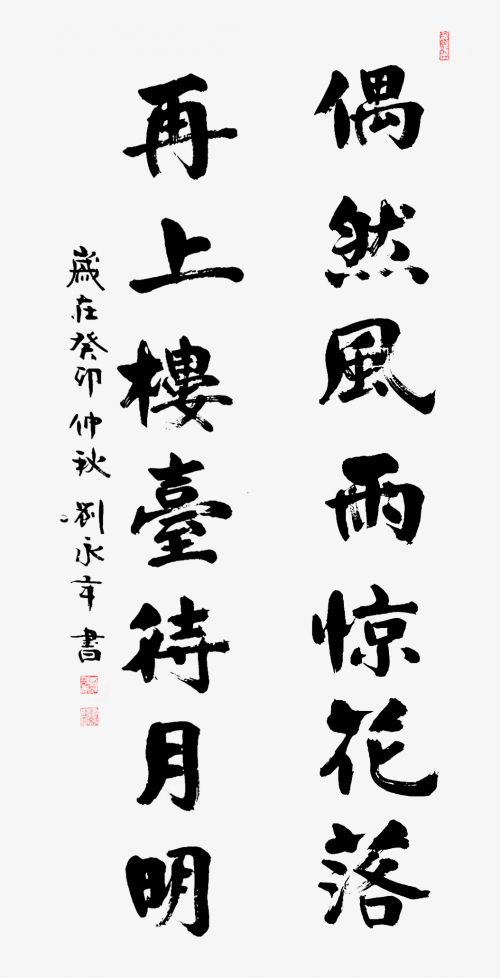 偶然風雨惊花落
再上樓臺待月明
歲在癸卯仲秋 劉永年書